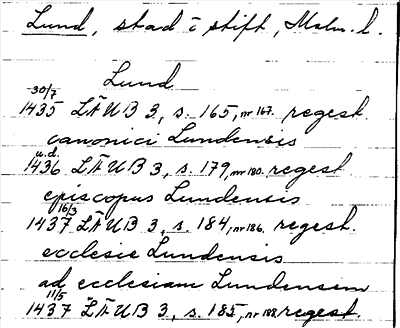 Lund, stad i stift, Malm. l.
Lund
30/7
1435 LÄUB 3, s. 165, nr 167. regest.
canonici Lundensis
u.d.
1436 LÄUB 3, s. 179, nr 180. regest.
episcopus Lundensis
16/3
1437 LÄUB 3, s. 184, nr 186. regest.
ecclesie Lundensis
ad ecclesiam Lundensem
11/5
1437 LÄUB 3, s. 185, nr 188. regest.